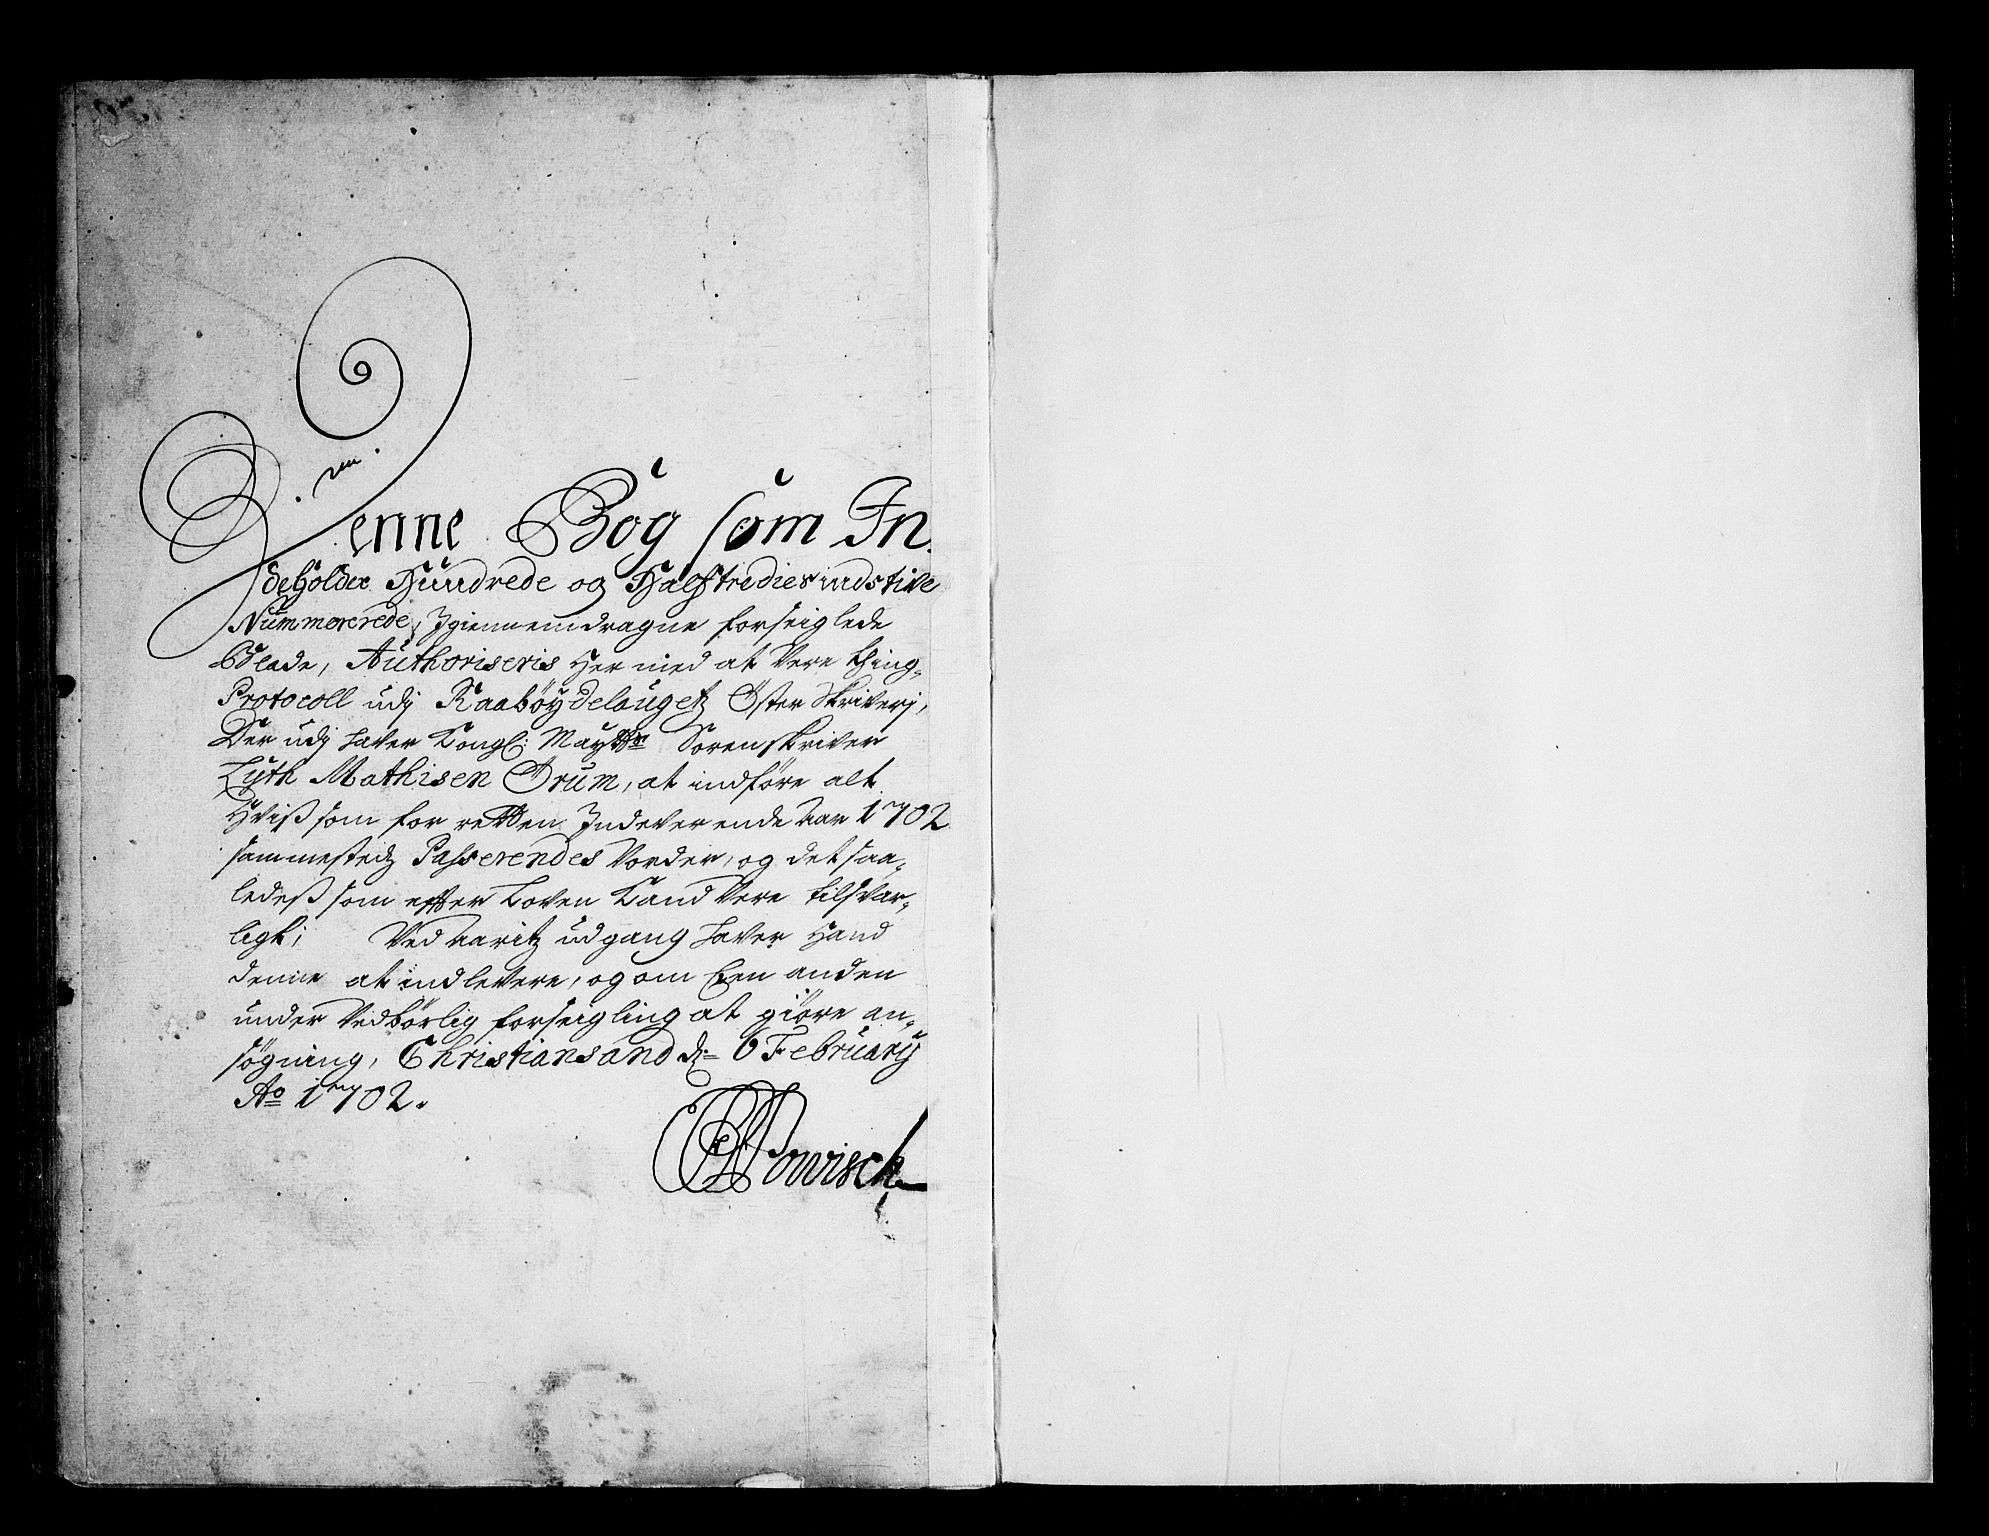 Denne Bog som In
deholder Hundrede og Halftrediesindstive
Nummererede, Igiennemdragne forseiglede
Blade, Authoriseris Her med at Vere thing-
Protocoll udj Raabøydelaugetz Øster Skriverj,
Der udj haver Kongl: Maytts Sorenskriver
Lyth Mathisen Ørum, at indføre alt
Hviß som for retten Indeverende Aar 1702
sammestedz Passerendes Vorder, og det saa-
ledeß som effter Loven Kand Vere tilsvar-
ligt; Ved Aaritz udgang haver Hand
denne at indlevere, og om Een anden
under Vedbørlig forseigling at giøre an-
søgning, Christiansand d: 6 February
Ao 1702.
Powisch